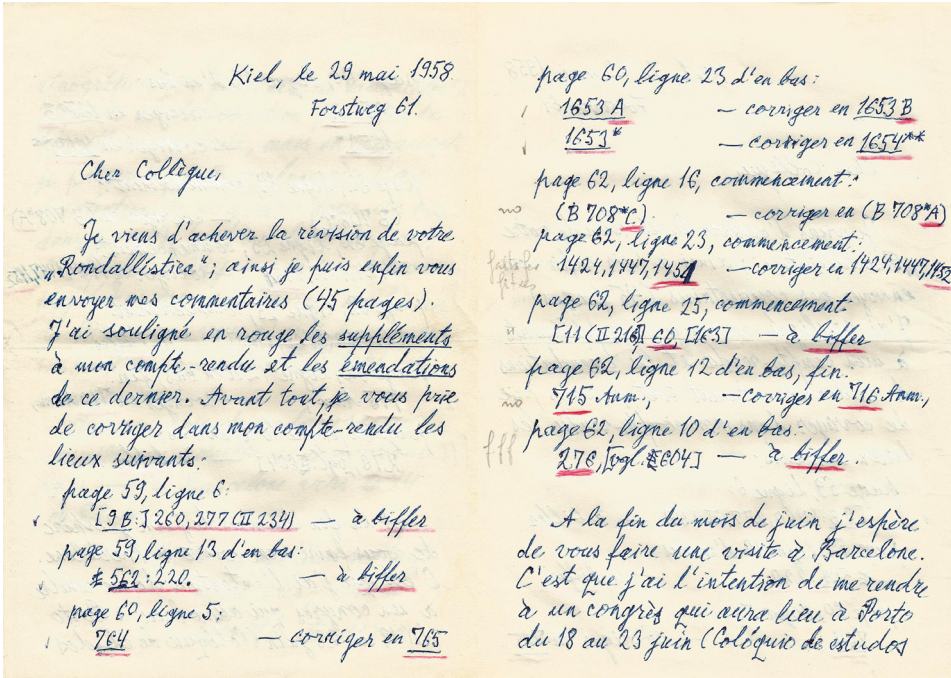 Kiel, le 29 mai 1958.
Forstweg 61.
Cher Collègue,
Je viens d'achever la révision de votre
„Rondallística"; ainsi je puis enfin vous
envoyer mes commentaires (45 pages).
J'ai souligné en rouge les suppléments
à mon compte-rendu et les émendations
de ce dernier. Avant tout, je vous prie
de corriger dans mon compte-rendu les
lieux suivants:
page 59, ligne 6:
[9B:] 260, 277 (II 234) — à biffer
page 59, ligne 13 d'en bas:
562:220. — à biffer
page 60, ligne 5:
764 — corriger en 765
page 60, ligne 23 d'en bas:
1653 A — corriger en 1653 B
1653* — corriger en 1654**
page 62, ligne 16, commencement:
no (B 708*C). — corriger en (B 708*A)
page 62, ligne 23, commencement:
1424, 1447, 1451 — corriger en 1424, 1447, 1452
page 62, ligne 25, commencement
[11 (II 216)] 60, [163] — à biffer
page 62, ligne 12 d'en bas, fin:
no 715 Anm., — corriger en 716 Anm.,
page 62, ligne 10 d'en bas:
276, [vgl. 604] — à biffer.
A la fin du mois de juin j'espère
de vous faire une visite à Barcelone.
C'est que j'ai l'intention de me rendre
à un congrès qui aura lieu à Porto
du 18 au 23 juin (Colóquio de estudos